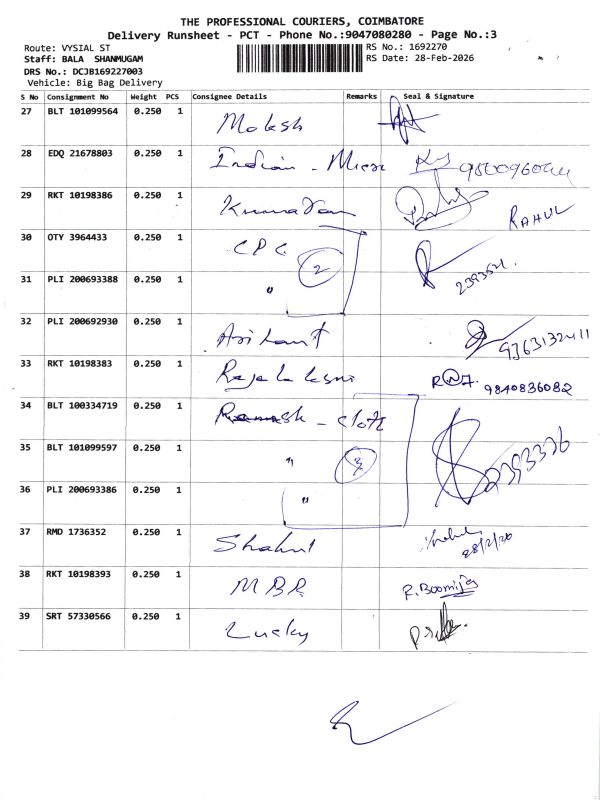 THE PROFESSIONAL COURIERS, COIMBATORE
Delivery Runsheet - PCT - Phone No.:9047080280 - Page No.:3
Route: VYSIAL ST
RS No.: 1692270
Staff: BALA SHANMUGAM
RS Date: 28-Feb-2026
DRS No.: DCJB169227003
Vehicle: Big Bag Delivery
S No Consignment No Weight PCS Consignee Details Remarks Seal & Signature
27 BLT 101099564 0.250 1 Mokesh
28 EDQ 21678803 0.250 1 Indian - Micro
29 RKT 10198386 0.250 1 Kumaran RAHUL
30 OTY 3964433 0.250 1 CPC 2
31 PLI 200693388 0.250 1 "
32 PLI 200692930 0.250 1 Arihant 9363132411
33 RKT 10198383 0.250 1 Rajalakshmi 9840836082
34 BLT 100334719 0.250 1 Ramesh - cloth
35 BLT 101099597 0.250 1 " 3 2393376
36 PLI 200693386 0.250 1 "
37 RMD 1736352 0.250 1 Shahul 28/2/26
38 RKT 10198393 0.250 1 M.B.R. R.Boomija
39 SRT 57330566 0.250 1 Lucky